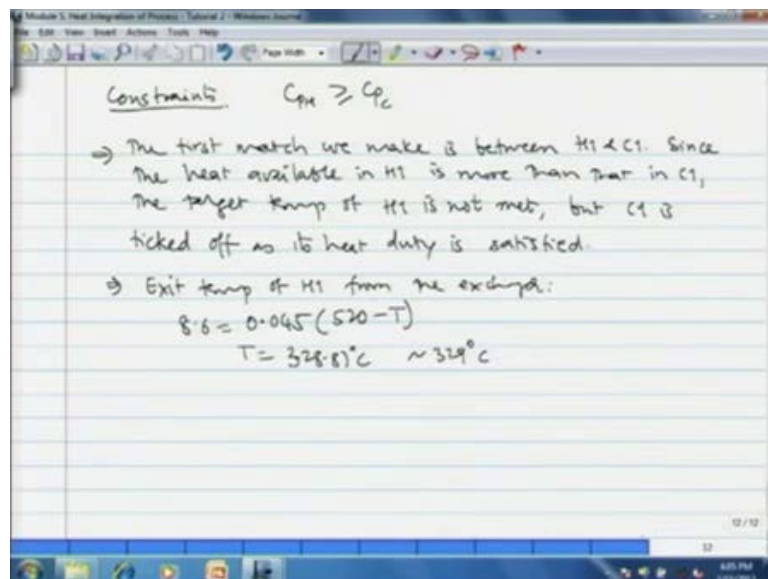 Module 5. Heat Integration of Process - Tutorial 2 - Windows Journal
File Edit View Insert Actions Tools Help
Page Width
Constraints CPH ≥ CPC
⇒ The first match we make is between H1 & C1. Since
the heat available in H1 is more than that in C1,
the target temp of H1 is not met, but C1 is
ticked off as its heat duty is satisfied.
⇒ Exit temp of H1 from the exchgr:
8.6 = 0.045 (520 - T)
T = 328.8)°C ~ 329°C
12 / 12
12
6:05 PM